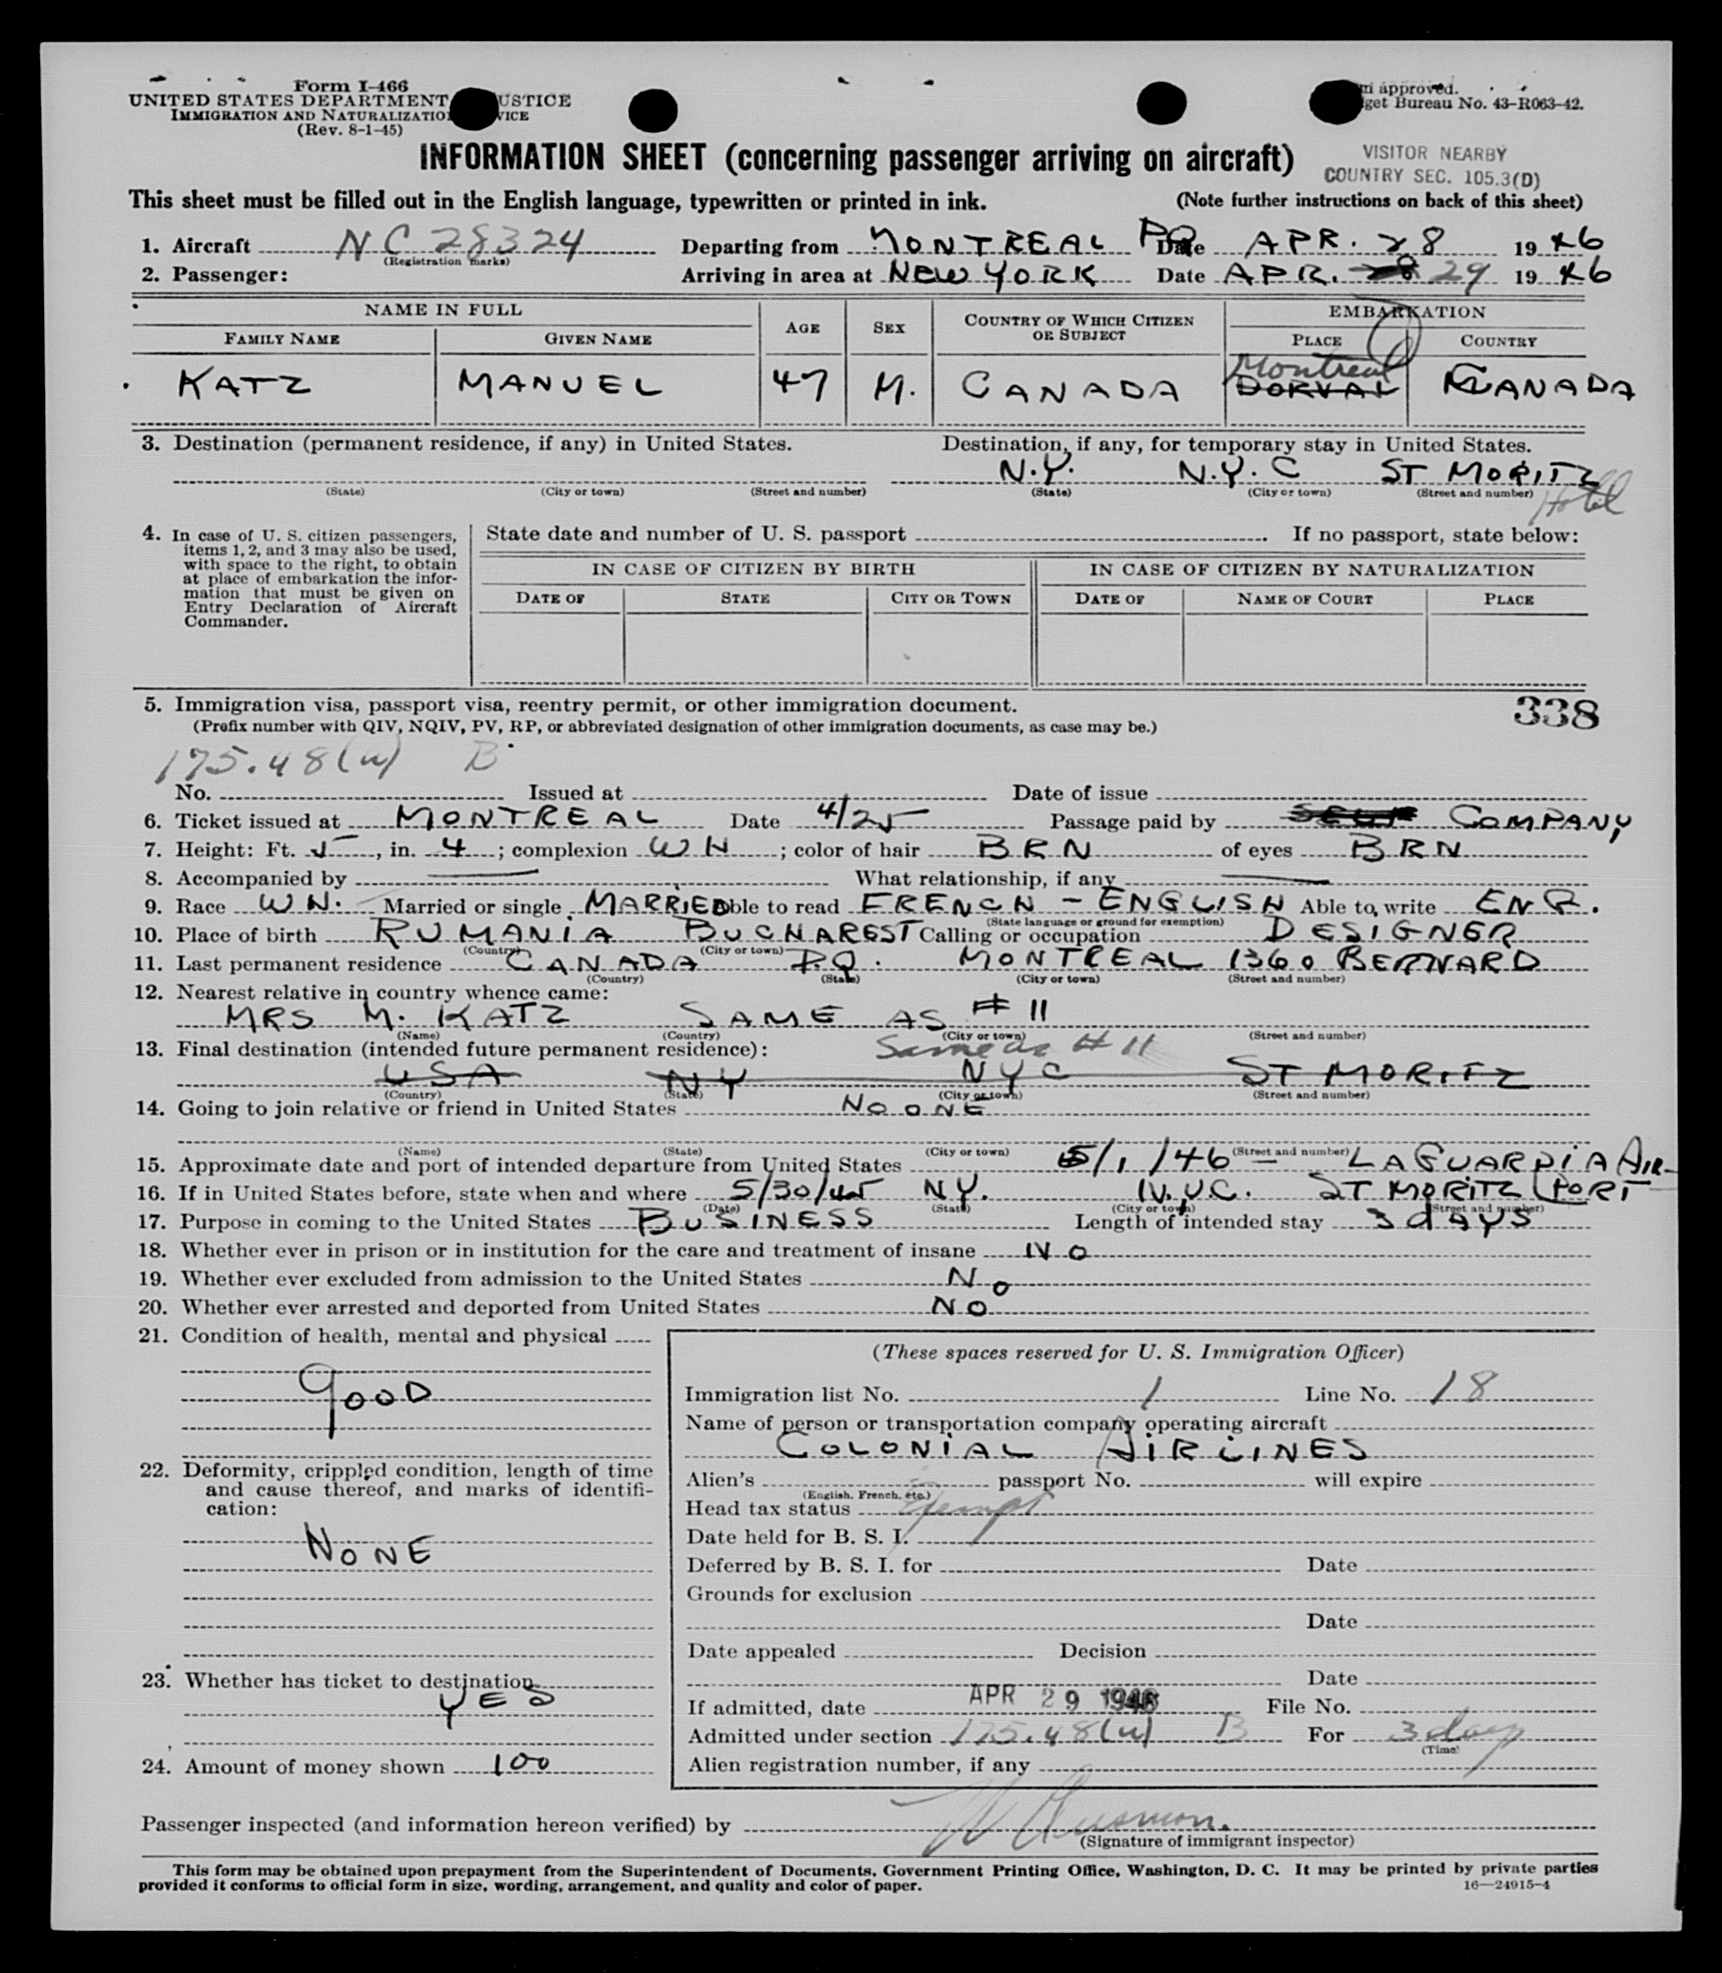 Form I-466
UNITED STATES DEPARTMENT USTICE
IMMIGRATION AND NATURALIZATIO VICE
(Rev. 8-1-45)
approved.
get Bureau No. 43-R063-42.
INFORMATION SHEET (concerning passenger arriving on aircraft)
VISITOR NEARBY
COUNTRY SEC. 105.3(D)
This sheet must be filled out in the English language, typewritten or printed in ink. (Note further instructions on back of this sheet)
1. Aircraft NC 28324 Departing from MONTREAL PQ Date APR. 28 1946
(Registration marks)
2. Passenger: Arriving in area at NEW YORK Date APR. 28 29 1946
NAME IN FULL AGE SEX COUNTRY OF WHICH CITIZEN OR SUBJECT EMBARKATION
FAMILY NAME GIVEN NAME PLACE COUNTRY
Montreal
KATZ MANUEL 47 M. CANADA DORVAL CANADA
3. Destination (permanent residence, if any) in United States. Destination, if any, for temporary stay in United States.
N.Y. N.Y.C ST MORITZ
(State) (City or town) (Street and number) (State) (City or town) (Street and number) Hotel
4. In case of U. S. citizen passengers, items 1, 2, and 3 may also be used, with space to the right, to obtain at place of embarkation the information that must be given on Entry Declaration of Aircraft Commander.
State date and number of U. S. passport If no passport, state below:
IN CASE OF CITIZEN BY BIRTH IN CASE OF CITIZEN BY NATURALIZATION
DATE OF STATE CITY OR TOWN DATE OF NAME OF COURT PLACE
5. Immigration visa, passport visa, reentry permit, or other immigration document. 338
(Prefix number with QIV, NQIV, PV, RP, or abbreviated designation of other immigration documents, as case may be.)
175.48(a) B
No. Issued at Date of issue
6. Ticket issued at MONTREAL Date 4/25 Passage paid by SELF COMPANY
7. Height: Ft. 5, in. 4; complexion WH; color of hair BRN of eyes BRN
8. Accompanied by — What relationship, if any —
9. Race WH. Married or single MARRIED Able to read FRENCH - ENGLISH Able to write ENG.
(State language or ground for exemption)
10. Place of birth RUMANIA BUCHAREST Calling or occupation DESIGNER
(Country) (City or town)
11. Last permanent residence CANADA P.Q. MONTREAL 1360 BERNARD
(Country) (State) (City or town) (Street and number)
12. Nearest relative in country whence came:
MRS M. KATZ SAME AS # 11
(Name) (Country) (City or town) (Street and number)
13. Final destination (intended future permanent residence): Same as # 11
USA NY NYC ST MORITZ
(Country) (State) (City or town) (Street and number)
14. Going to join relative or friend in United States NO ONE
(Name) (State) (City or town) (Street and number)
15. Approximate date and port of intended departure from United States 5/1/46 — LAGUARDIA AIR-
16. If in United States before, state when and where 5/30/45 NY. N.Y.C. ST MORITZ PORT
(Date) (State) (City or town) (Street and number)
17. Purpose in coming to the United States BUSINESS Length of intended stay 3 dAYS
18. Whether ever in prison or in institution for the care and treatment of insane NO
19. Whether ever excluded from admission to the United States NO
20. Whether ever arrested and deported from United States NO
21. Condition of health, mental and physical
GOOD
22. Deformity, crippled condition, length of time and cause thereof, and marks of identification:
NONE
23. Whether has ticket to destination
YES
24. Amount of money shown 100
(These spaces reserved for U. S. Immigration Officer)
Immigration list No. 1 Line No. 18
Name of person or transportation company operating aircraft
COLONIAL AIRLINES
Alien's passport No. will expire
(English, French, etc.)
Head tax status Exempt
Date held for B. S. I.
Deferred by B. S. I. for Date
Grounds for exclusion
Date
Date appealed Decision
Date
If admitted, date APR 29 1946 File No.
Admitted under section 175.48(a) B For 3 days
(Time)
Alien registration number, if any
Passenger inspected (and information hereon verified) by
(Signature of immigrant inspector)
This form may be obtained upon prepayment from the Superintendent of Documents, Government Printing Office, Washington, D. C. It may be printed by private parties
provided it conforms to official form in size, wording, arrangement, and quality and color of paper. 16—24915-4